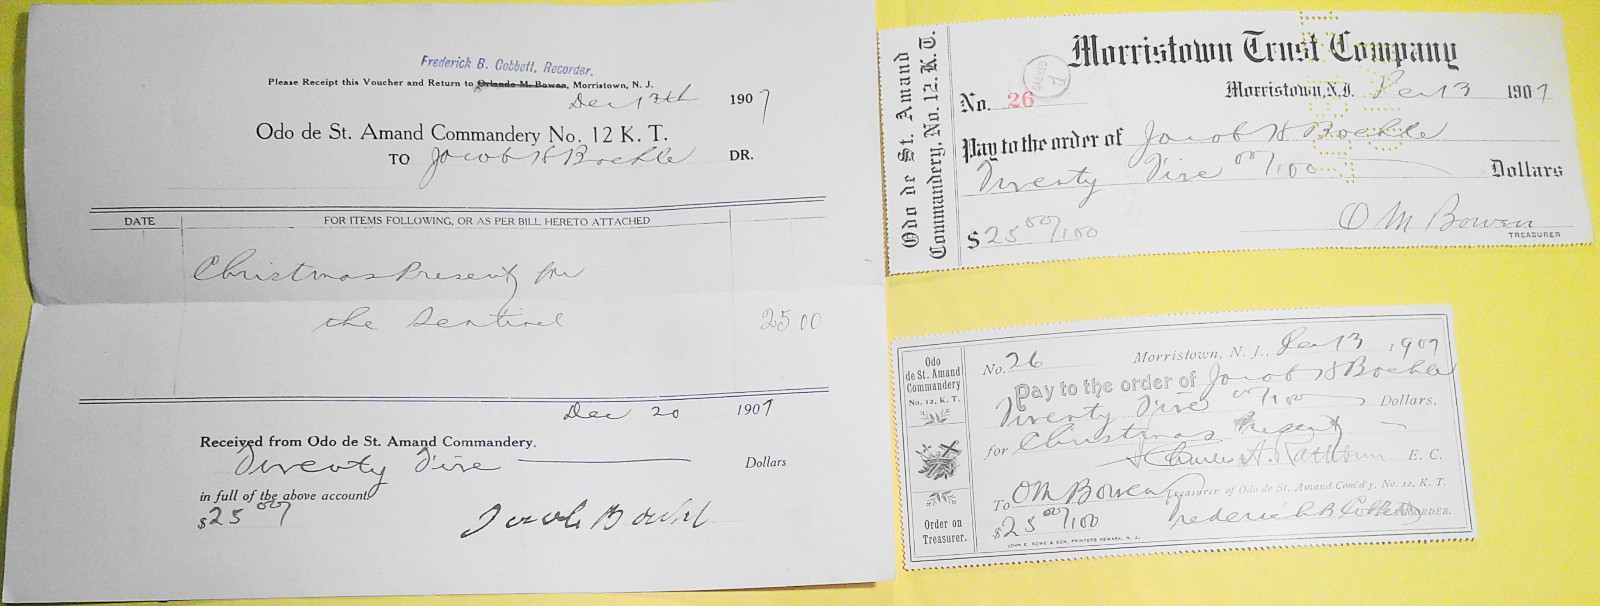 Frederick B. Cobbett, Recorder.
Please Receipt this Voucher and Return to Orlando M. Bowen, Morristown, N. J.
Dec 17th 1907
Odo de St. Amand Commandery No. 12 K. T.
TO Jacob H Boehle DR.
DATE FOR ITEMS FOLLOWING, OR AS PER BILL HERETO ATTACHED
Christmas Present for
the Sentinel 25 00
Dec 20 1907
Received from Odo de St. Amand Commandery,
Twenty Five Dollars
in full of the above account
$25 00/
Jacob Boehl
Odo de St. Amand
Commandery, No. 12, K. T.
Morristown Trust Company
No. 26 Morristown, N.J. Dec 13 1907
Pay to the order of Jacob H Boehle
Twenty Five 00/100 Dollars
$25 00/100 O M Bowen
TREASURER
Odo
de St. Amand
Commandery
No. 12, K. T.
Order on
Treasurer.
No. 26 Morristown, N. J., Dec 13 1907
Pay to the order of Jacob H Boehle
Twenty Five 00/100 Dollars,
for Christmas Present
Charles A. Rathbun E. C.
To O M Bowen Treasurer of Odo de St. Amand Com'd'y, No. 12, K. T.
$25 00/100 Frederick B Cobbett RECORDER.
JOHN E. ROWE & SON, PRINTERS NEWARK, N. J.